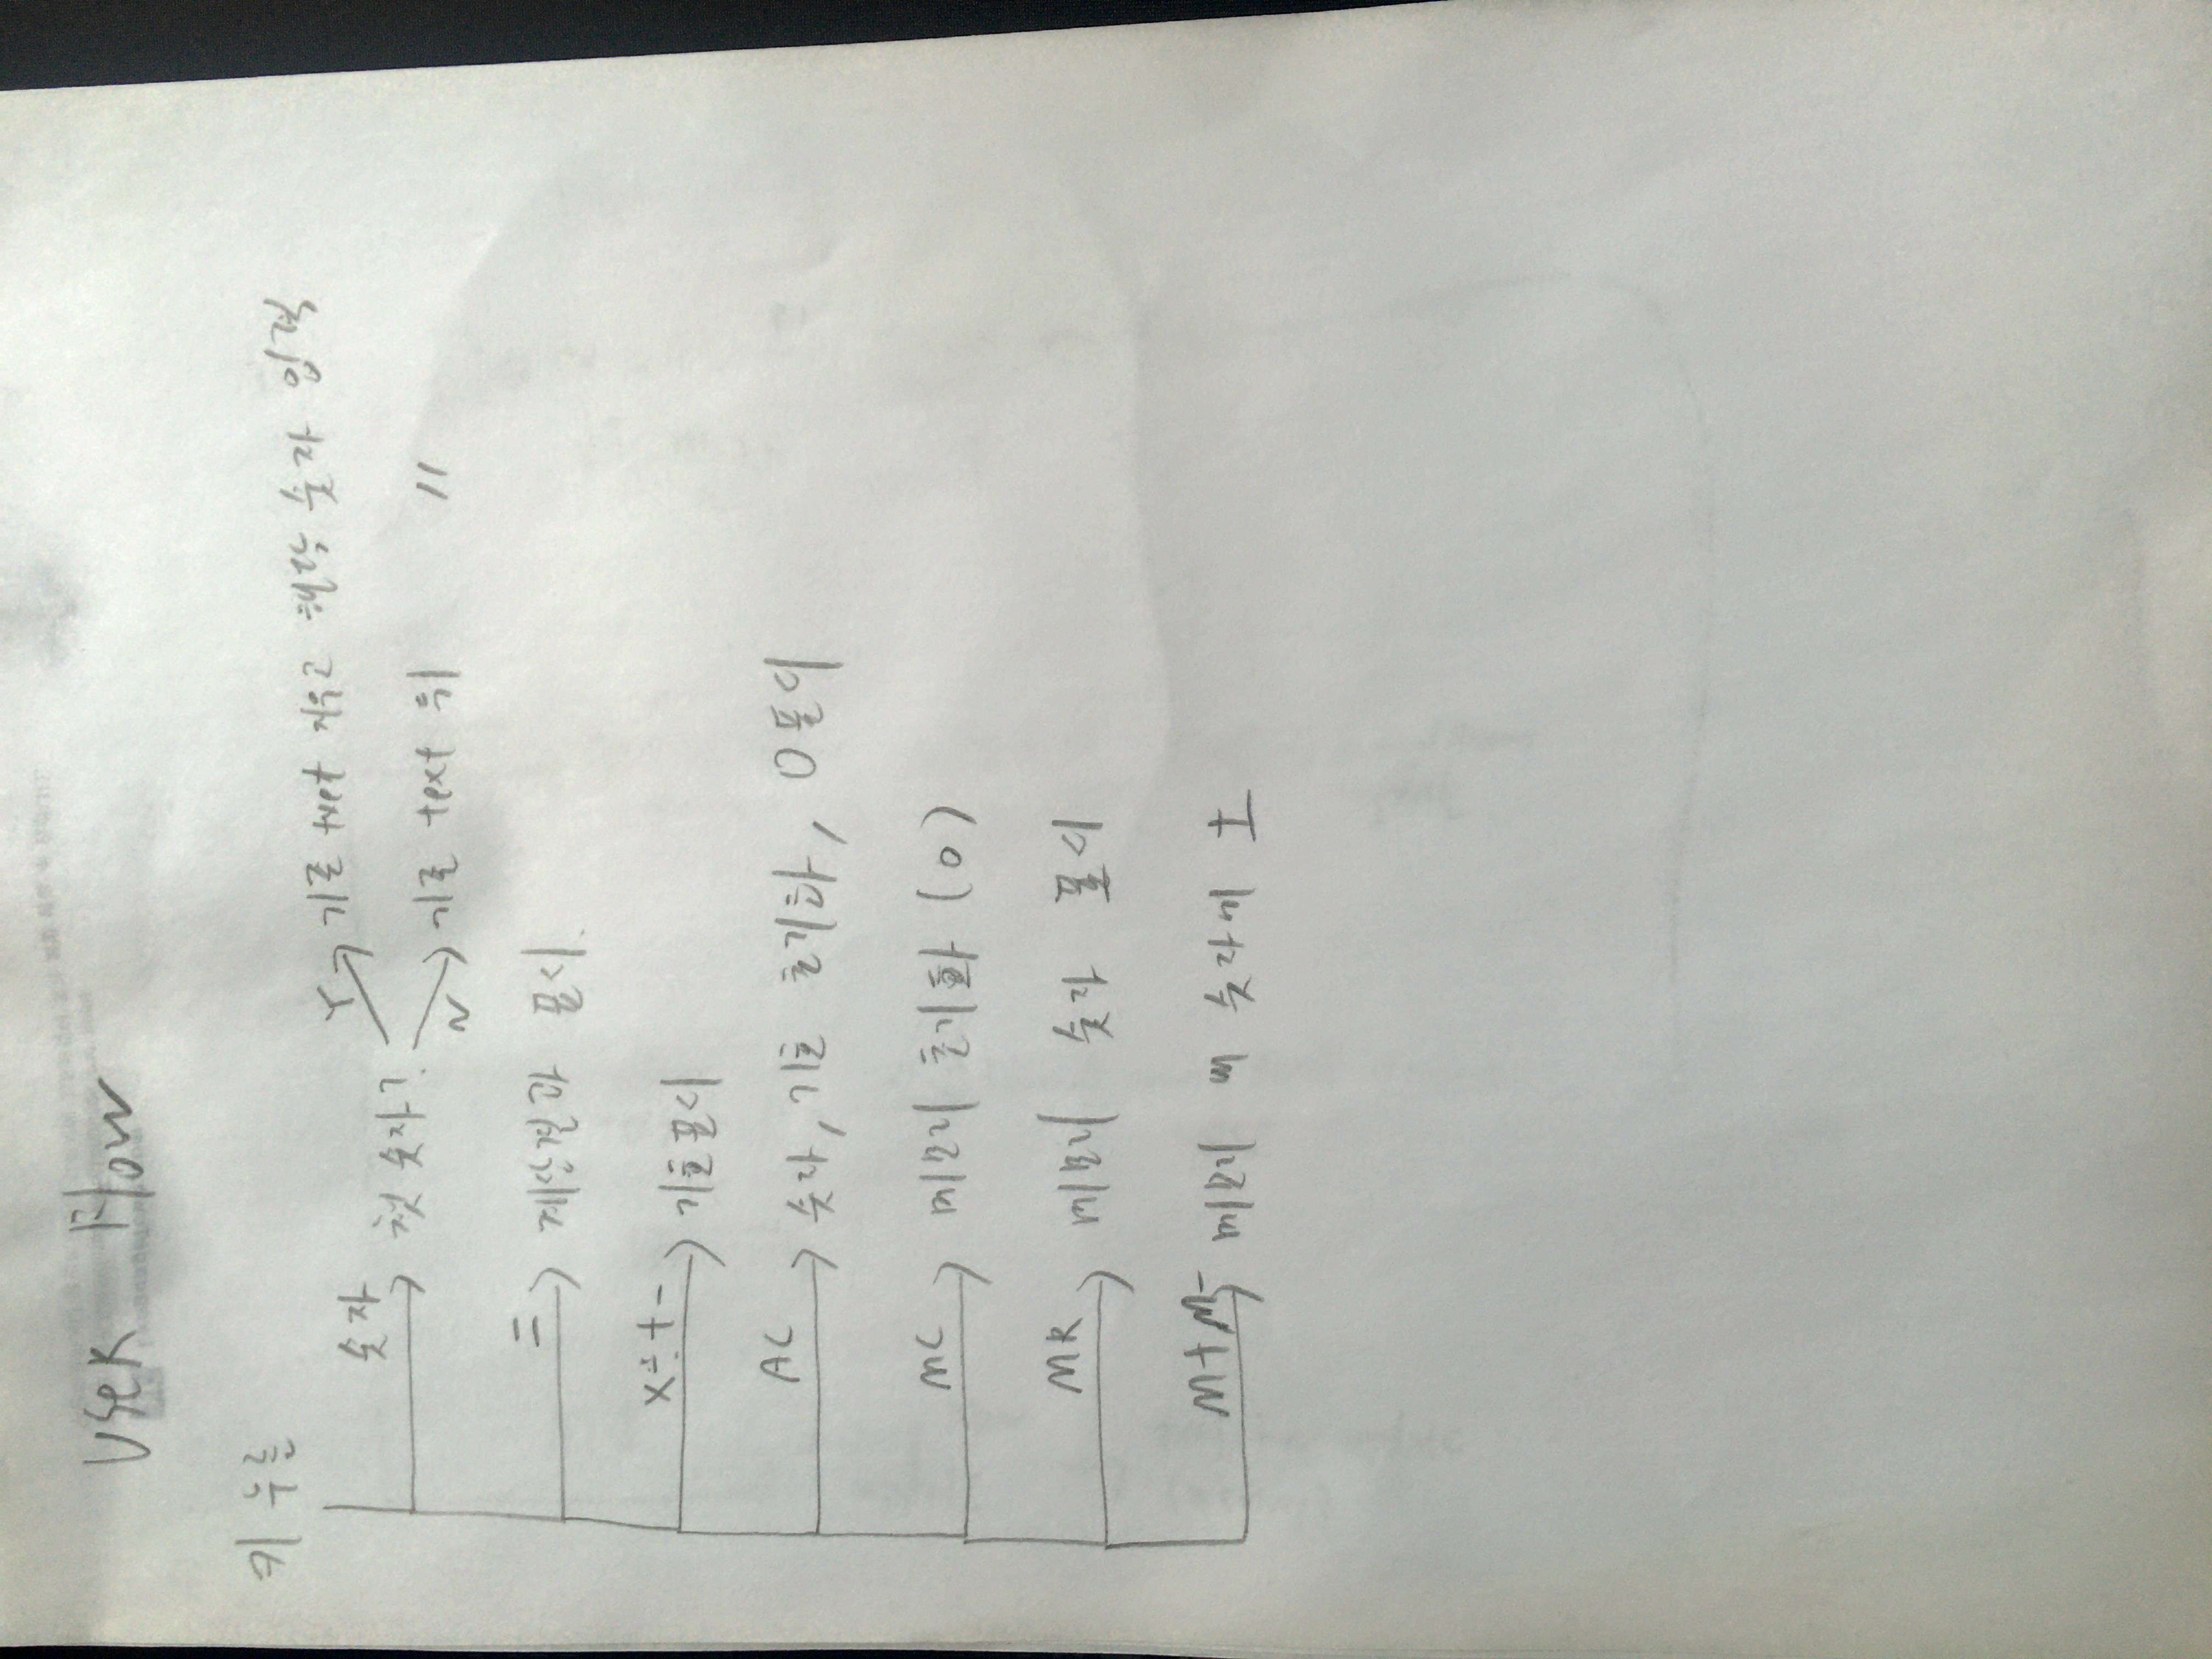 User Flow
키 누름
숫자 → 첫 숫자? Y → 기존 text 지우고 해당 숫자 입력
N → 기존 text 뒤 "
= → 계산결과 표시
× ÷ + - → 기호표시
AC → 숫자, 기호 초기화, 0 표시
MC → 메모리 초기화 (0)
MR → 메모리 숫자 표시
M+ M- → 메모리에 숫자를 ±